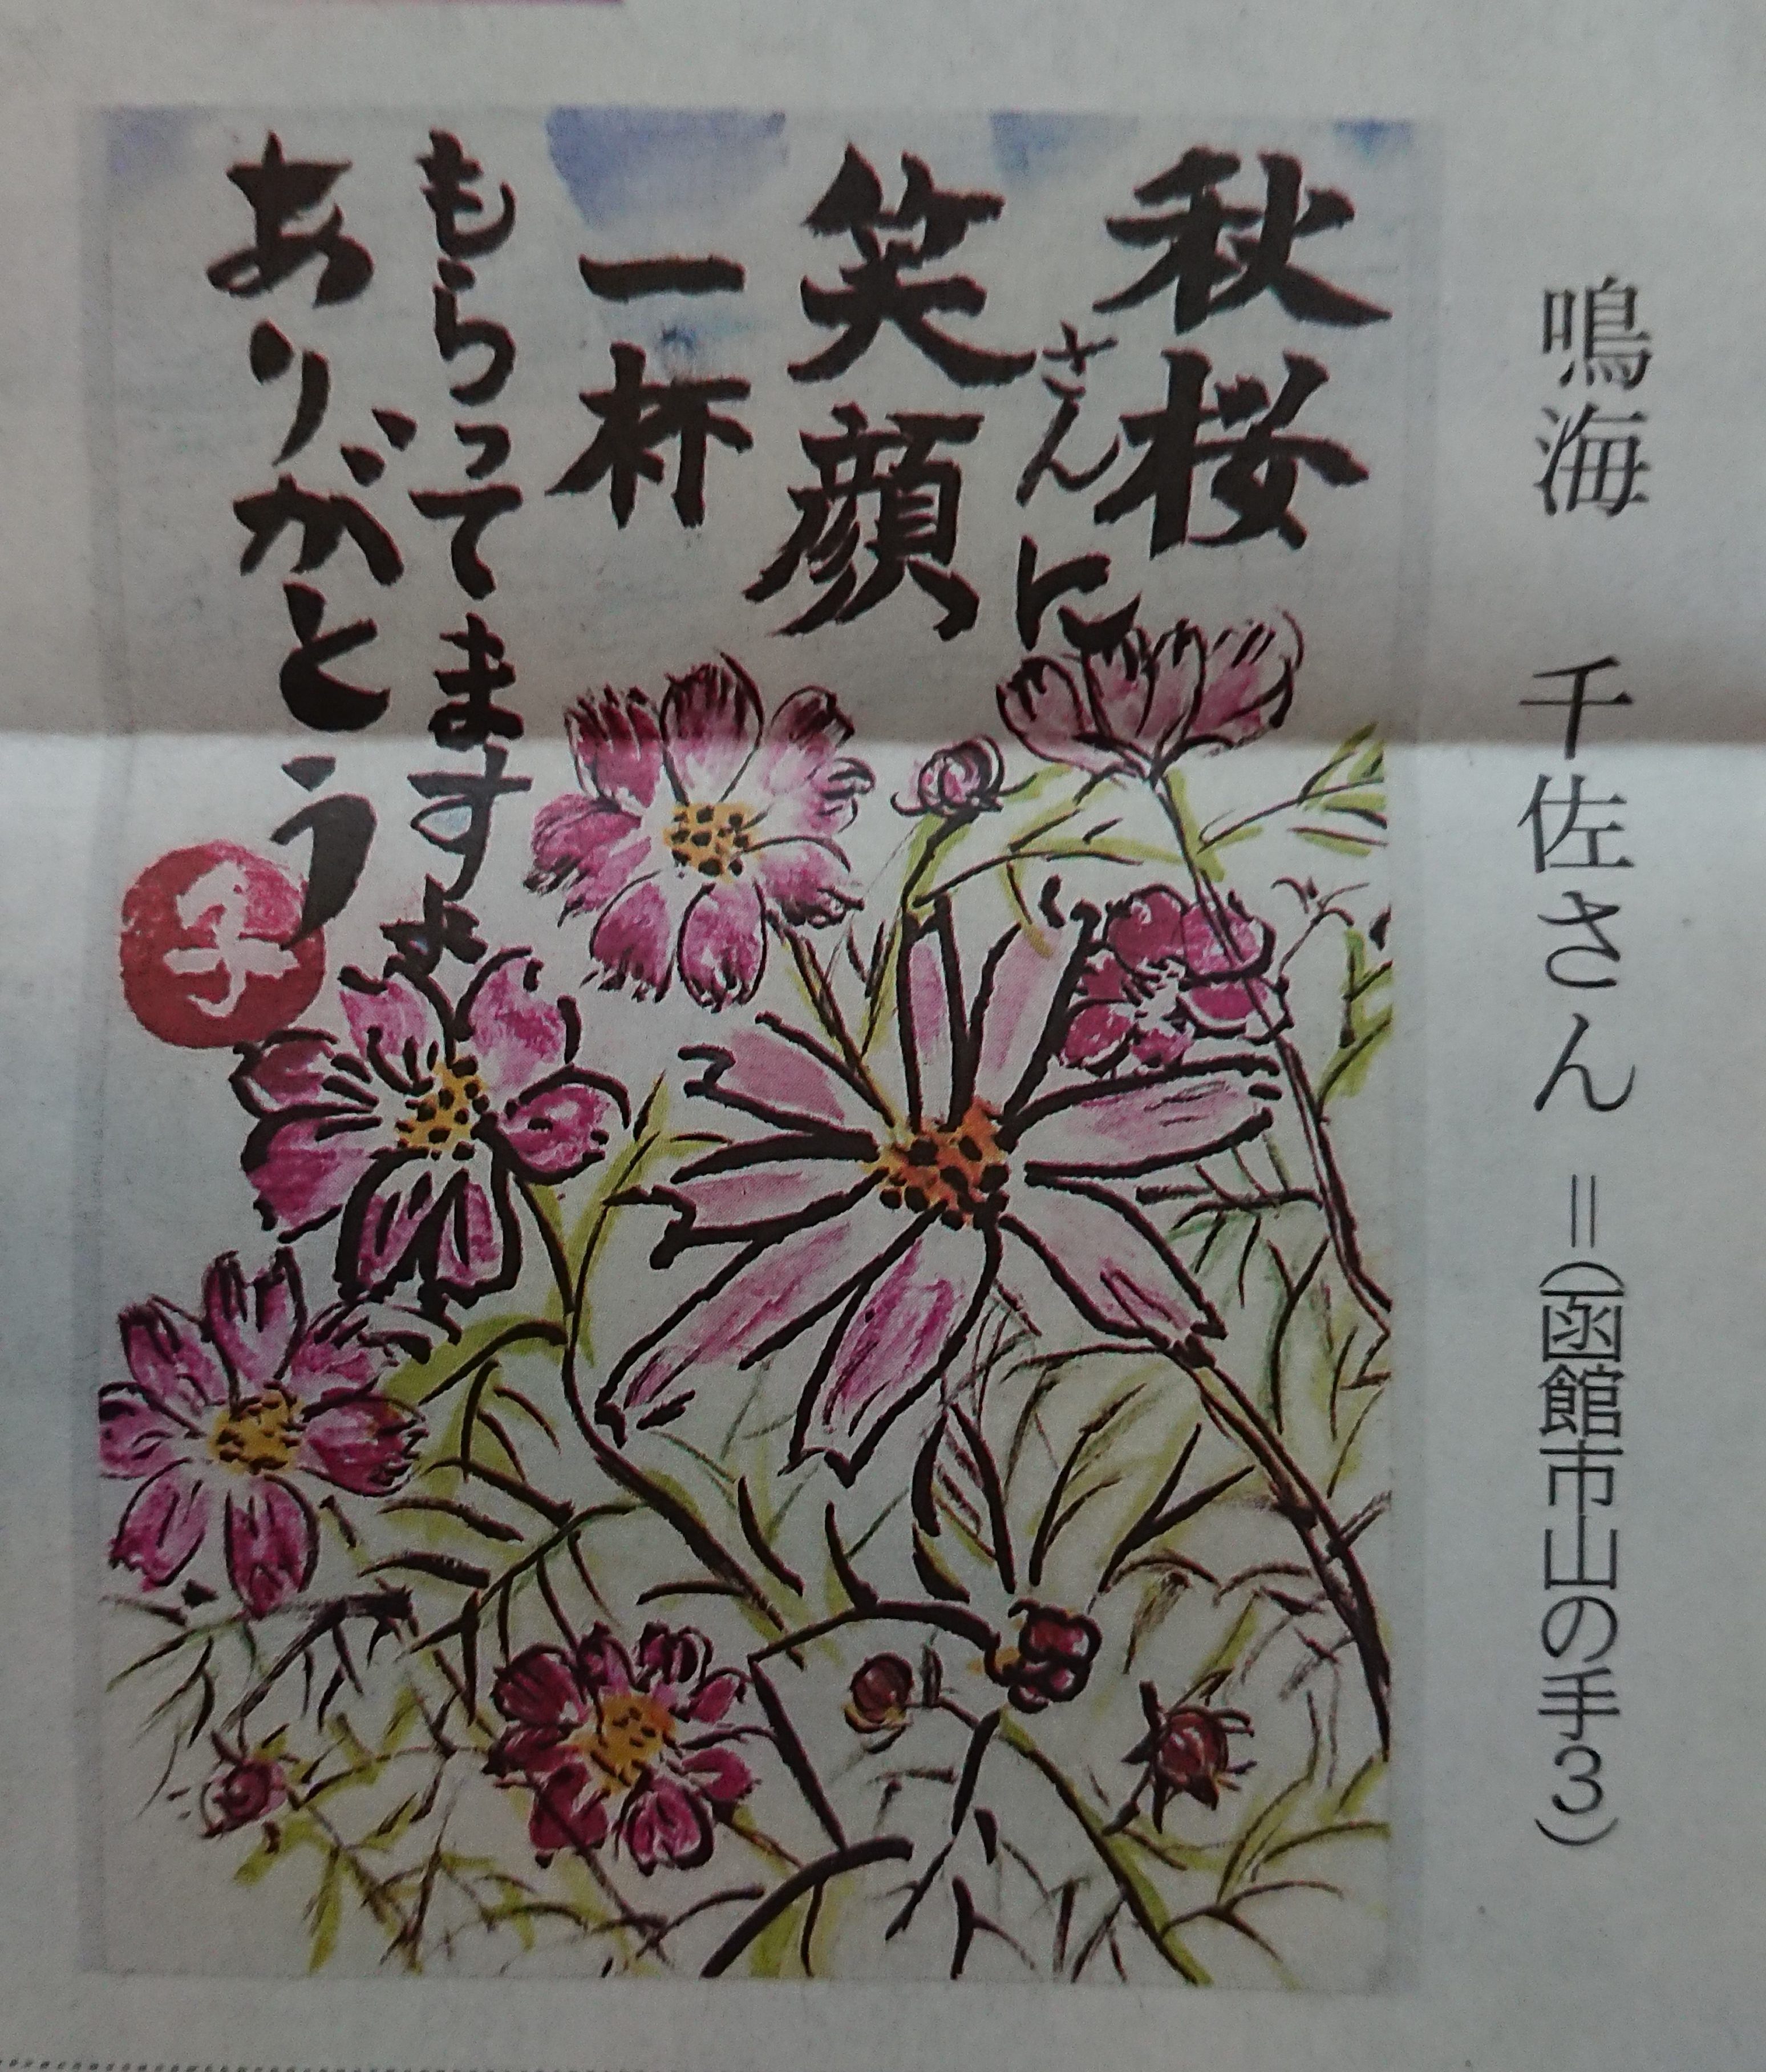 鳴海 千佐さん =(函館市山の手3)
秋桜
さんに
笑顔
一杯
もらってますよ
ありがとう